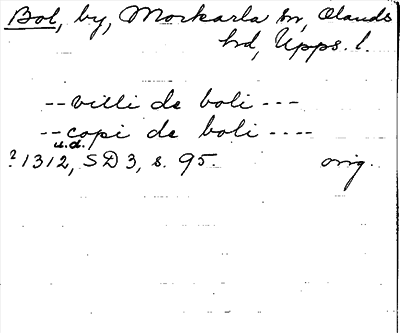 Bol, by, Morkarla sn, Olands
hd, Upps. l.
-- villi de boli ---
-- copi de boli ----
u.d.
? 1312, SD 3, s. 95. orig.